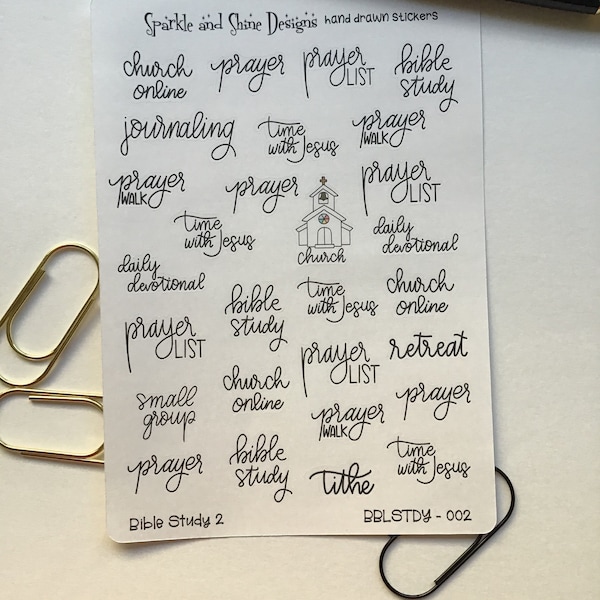 Sparkle and Shine Designs hand drawn stickers
church
online
prayer
prayer
LIST
bible
study
journaling
time
with Jesus
prayer
WALK
prayer
WALK
prayer
prayer
LIST
time
with Jesus
church
daily
devotional
daily
devotional
bible
study
time
with Jesus
church
online
prayer
LIST
church
online
prayer
LIST
retreat
small
group
prayer
WALK
prayer
prayer
bible
study
tithe
time
with Jesus
Bible Study 2
BBLSTDY - 002